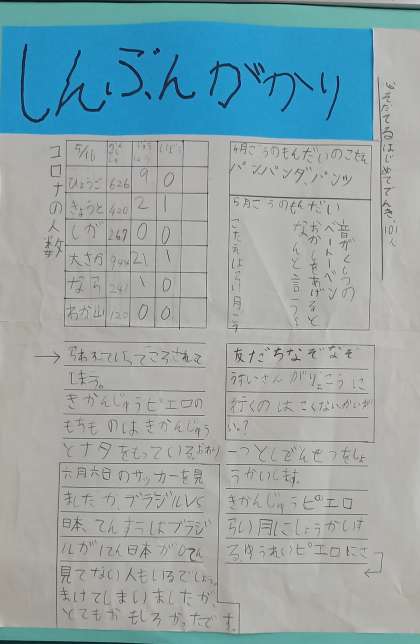 しんぶんがかり
どそだてるはじめてでんき、101人
コロナの人数
5/16
ひょうご 626 9 0
きょうと 420 2 1
しが 247 0 0
大さか 944 21 1
なら 241 1 0
わか山 120 0 0
4月ごうのもんだいのこたえ
パンパンダ、パンツ
5月ごうのもんだい
音がくしつの
ベートーベン
おかしをあげると
なんと言う?
こたえは6月ごう
友だちなぞなぞ
うすいさんがりょこうに
行くのはこくないかいがい
い?
一つとしでんせつをしょ
うかいします。
きかんじゅうピエロ
らい月にしょうかいす
る、ゆうれいピエロにさ
らわれていってころされて
しまう。
きかんじゅうピエロの
もちものはきかんじゅう
とナタをもっている。おわり
六月六日のサッカーを見
ましたか、ブラジルVS
日本、てんすうはブラジ
ルが1てん日本が0てん
見てない人もいるでしょう。
まけてしまいましたが、
とてもおもしろかったです。